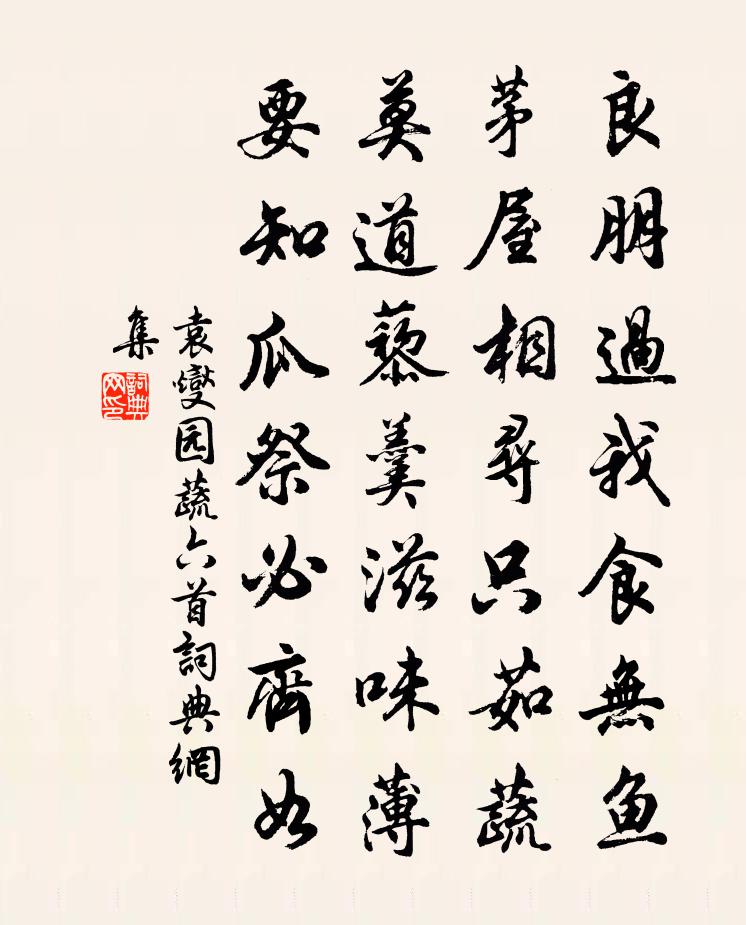 良朋過我食無魚
茅屋相尋只茹蔬
莫道藜羹滋味薄
要知瓜祭必齊如
袁燮园蔬六首詞典網
集
詞典
网印